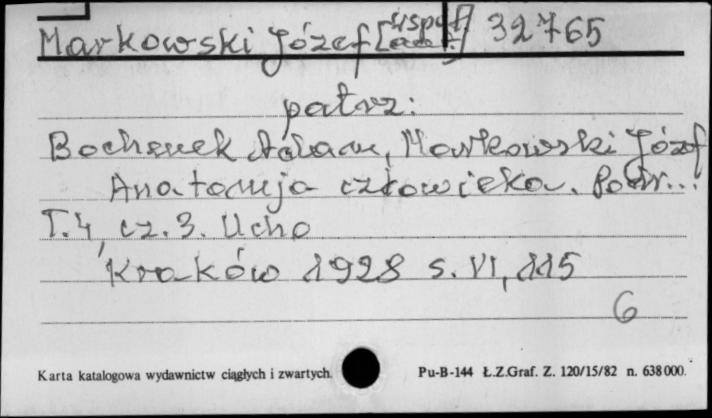 Markowski Józef [współaut.] 32765
patrz:
Bochenek Adam, Markowski Józef
Anatomja człowieka. Podr...
T.4, cz.3. Ucho
Kraków 1928 s. VI, 115
6
Karta katalogowa wydawnictw ciągłych i zwartych. Pu-B-144 Ł.Z.Graf. Z. 120/15/82 n. 638000.